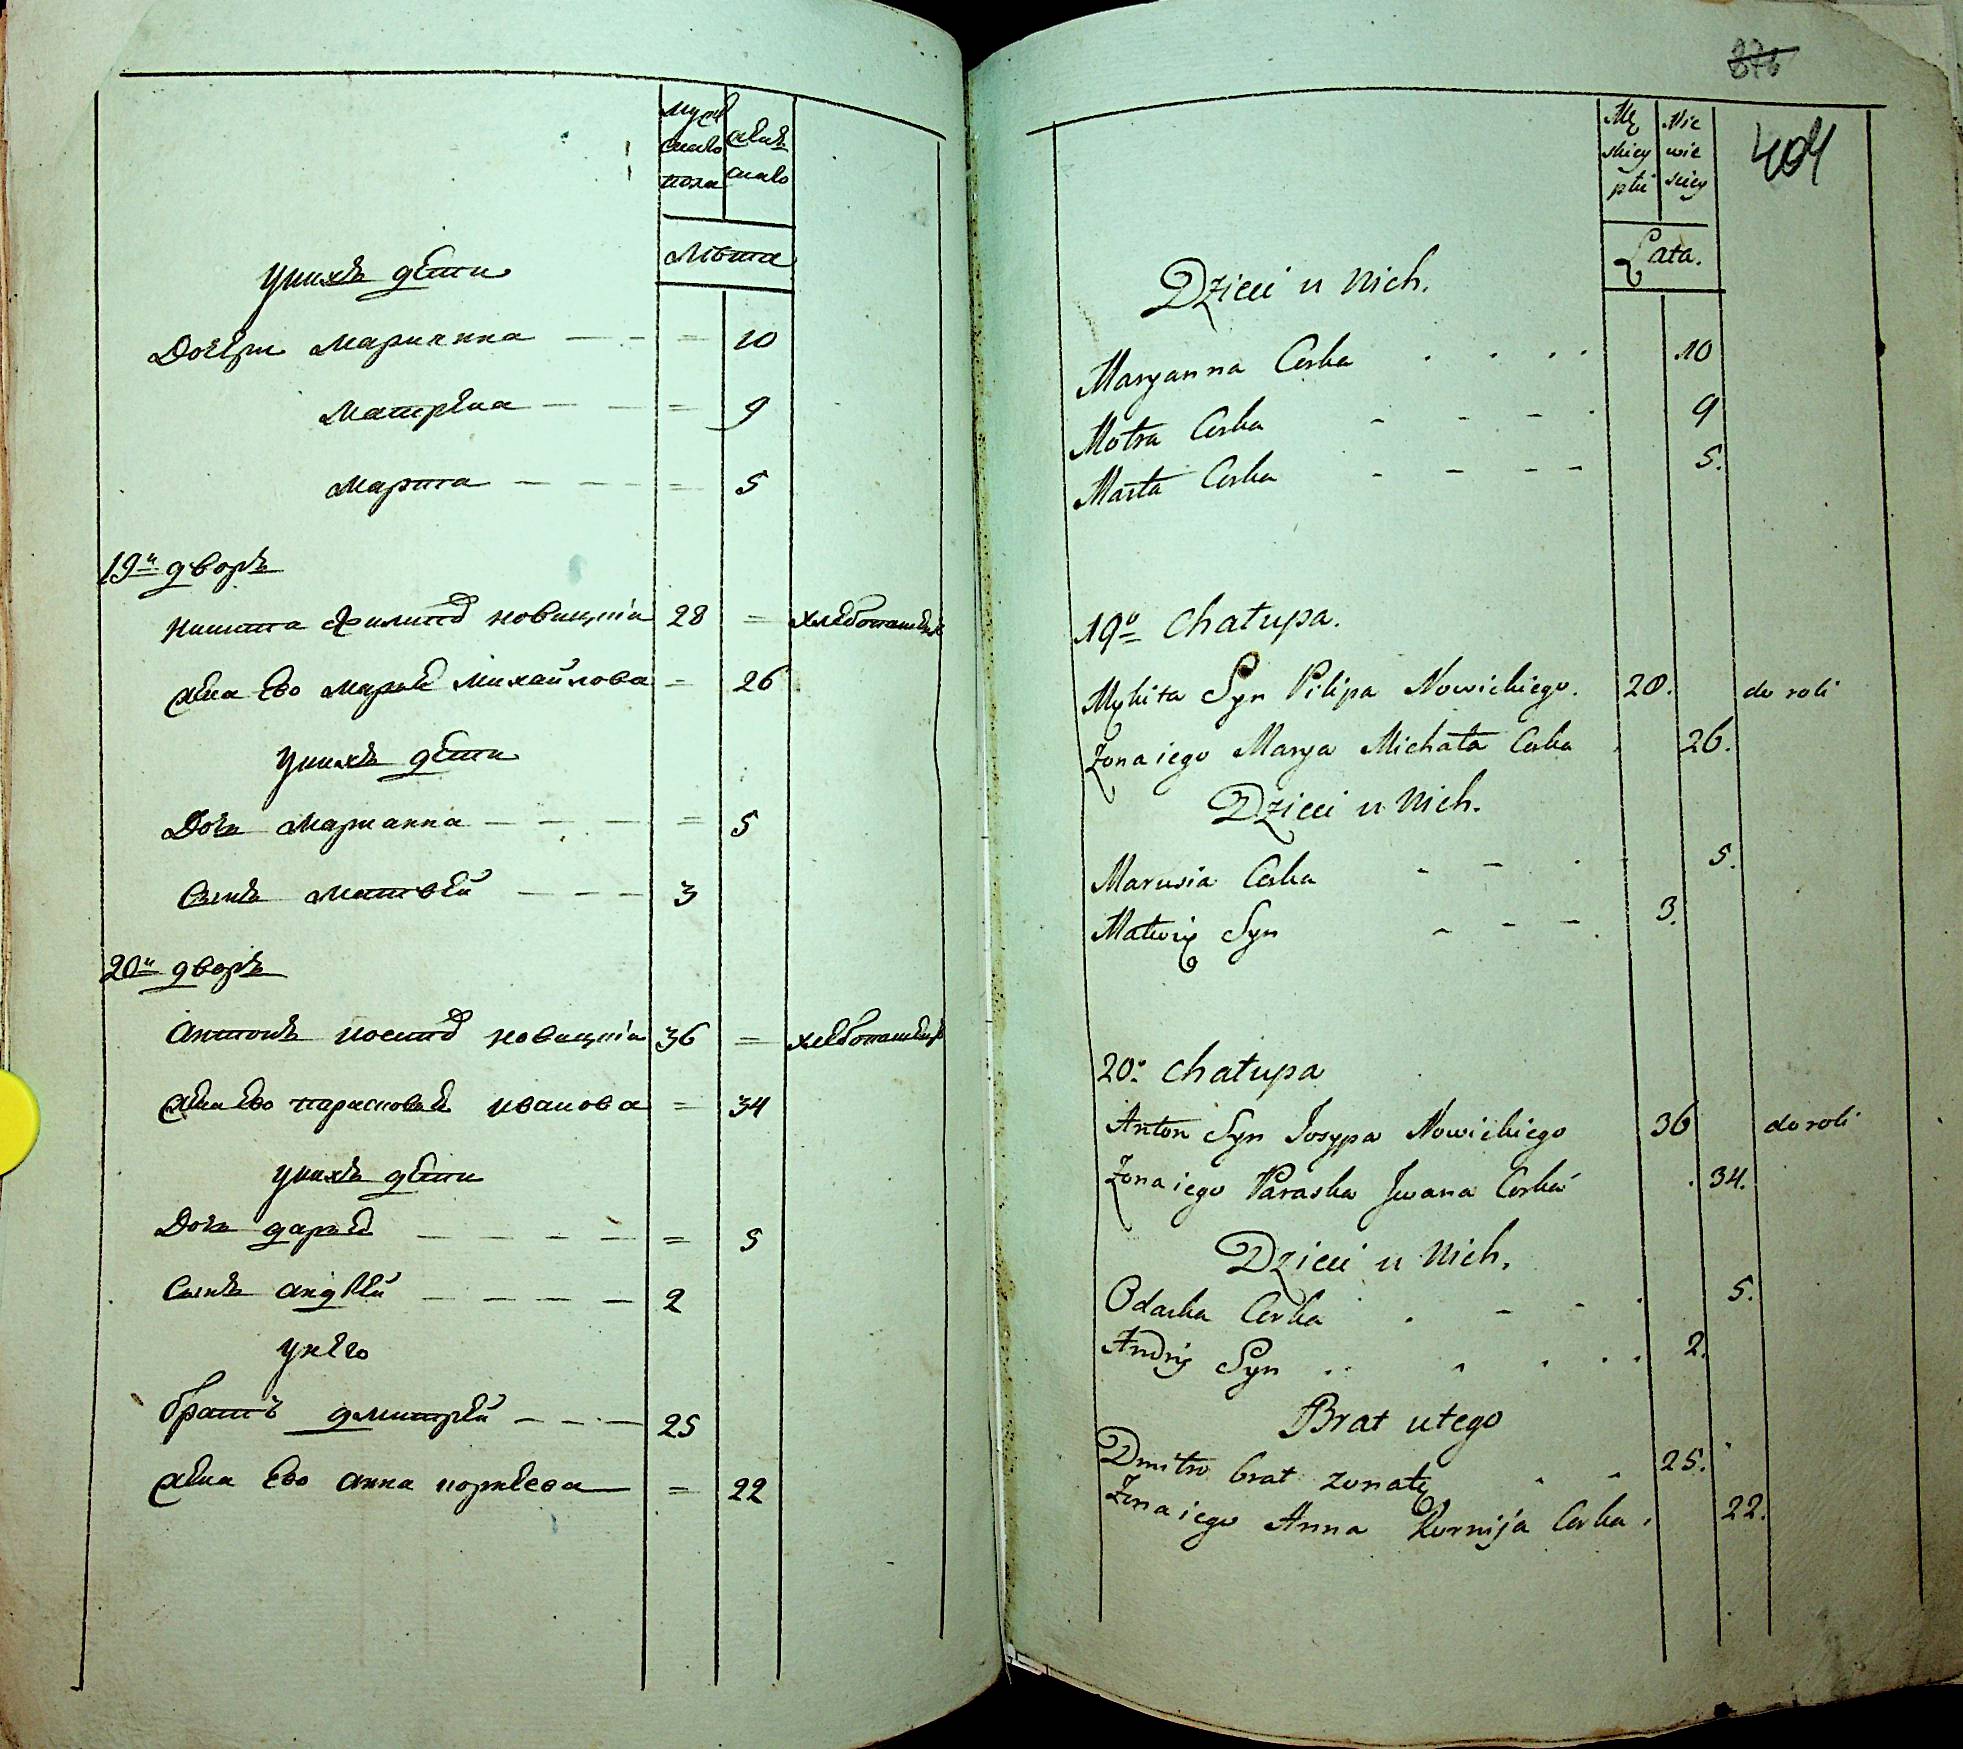 мужескаго пола
женскаго
Лѣта
у нихъ дѣти
Дочери Марианна — — = 10
Матрена — — = 9
Марта — — = 5
19й дворъ
Никита Филипов Новицкій 28 = хлебопашец
Жена Ево Марья Михайлова = 26
у нихъ дѣти
Дочь Марианна — — — = 5
Сынъ Матвей — — — 3
20й дворъ
Антонъ Иосипов Новицкій 36 = хлебопашец
Жена Ево Парасковья Иванова = 34
у нихъ дѣти
Дочь Дарья — — — — = 5
Сынъ Андрей — — — — 2
у него
братъ Дмитрей — — — 25
Жена Ево Анна Корнеева — = 22
876
404
Męskiey płci
Niewieściey
Lata.
Dzieci u Nich.
Maryanna Corka . . . . 10
Motra Corka - - - . 9
Marta Corka - - - - 5.
19o Chałupa.
Mykita Syn Pilipa Nowickiego. 28. do roli
Zona iego Marya Michała Corka . 26.
Dzieci u Nich.
Marusia Corka - - . . 5.
Matwiy Syn - - - . 3.
20o Chałupa
Anton Syn Josypa Nowickiego 36 do roli
Zona iego Paraska Jwana Corka . 34.
Dzieci u Nich.
Odarka Corka . - - . 5.
Andriy Syn . . . . . . 2.
Brat u tego
Dmitro brat zonaty - - 25.
Zona iego Anna Kornija Corka . 22.